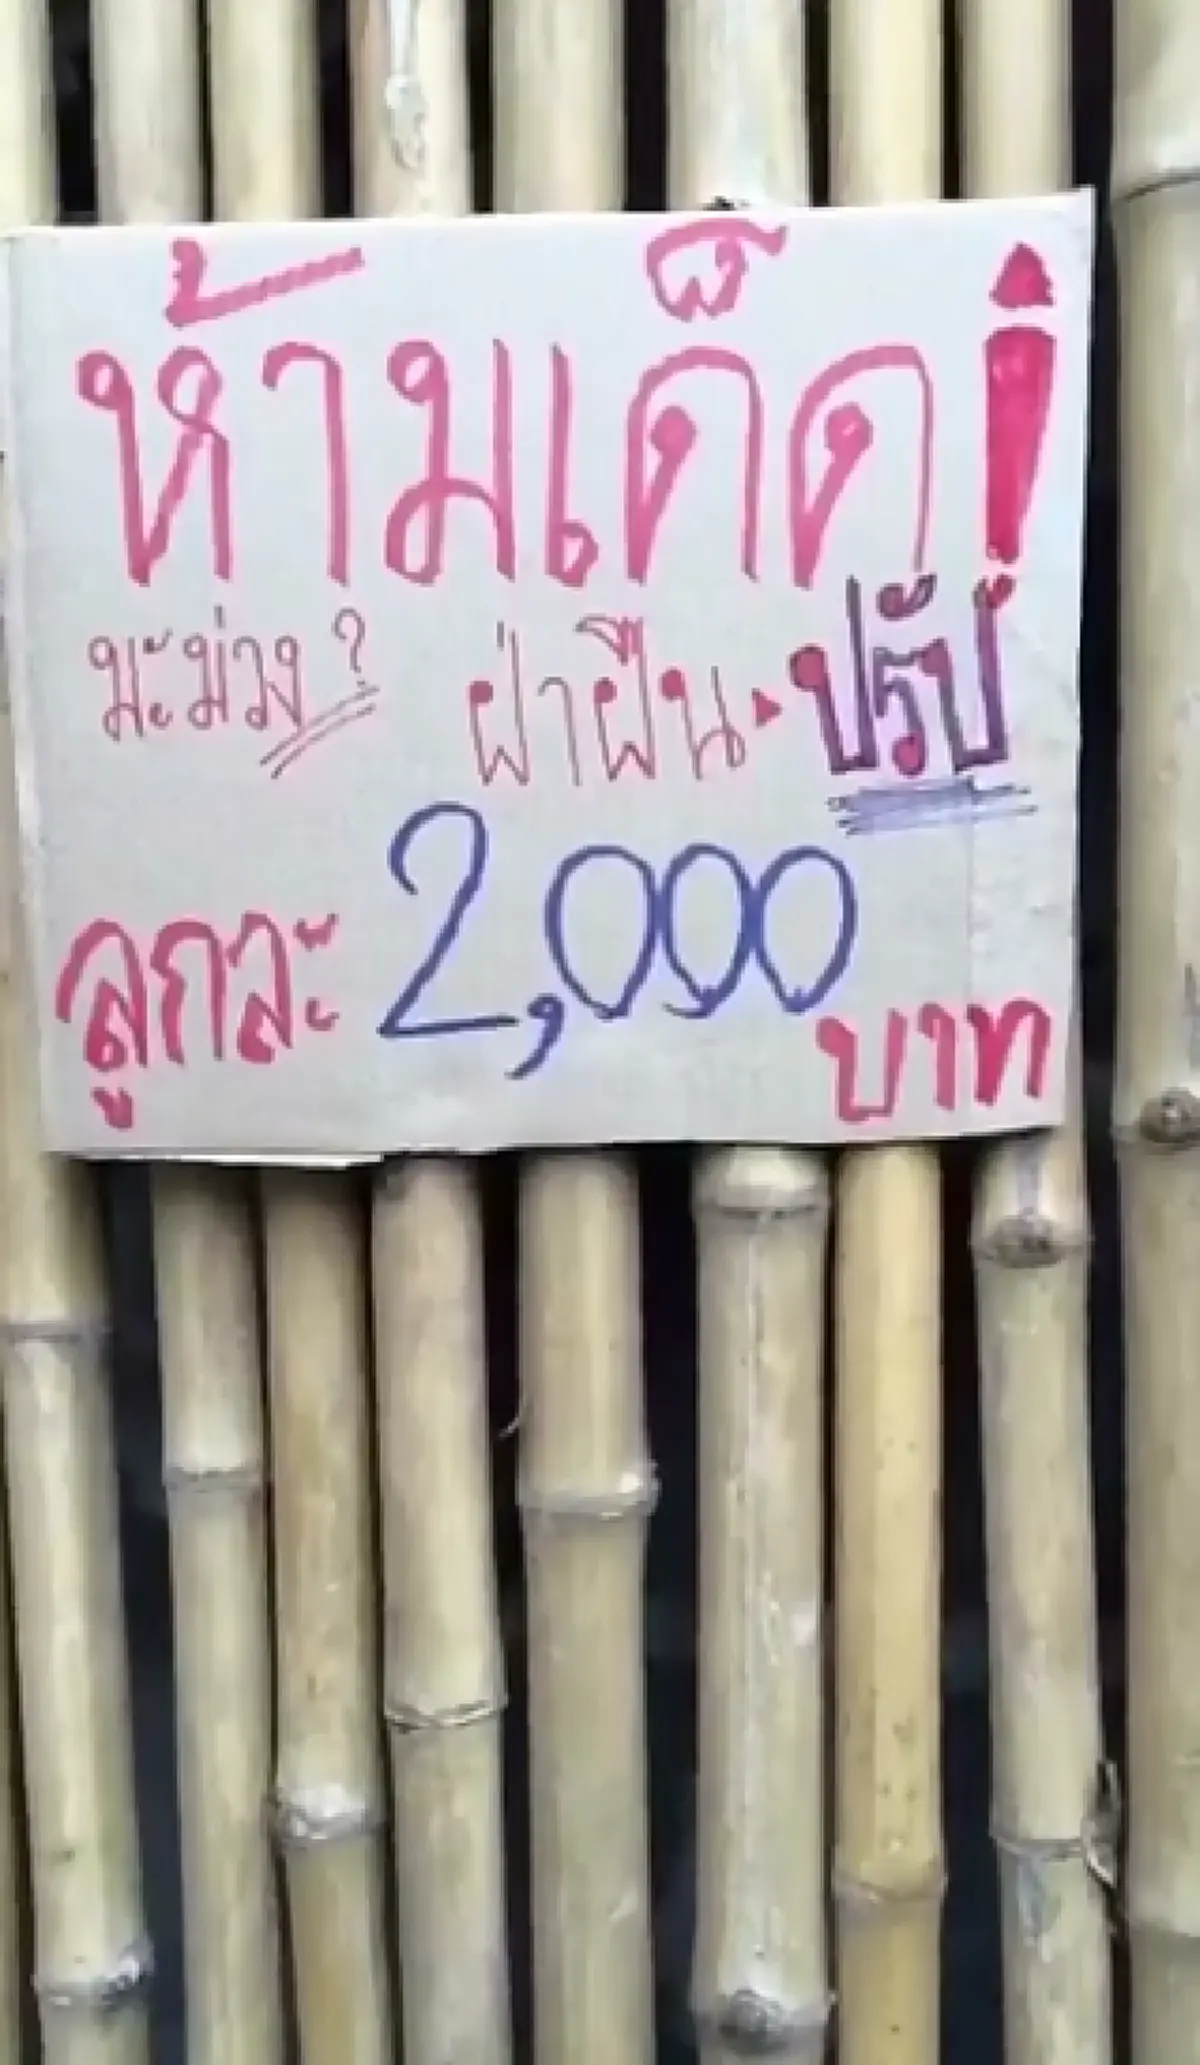 ห้ามเด็ด!
มะม่วง? ฝ่าฝืน ปรับ
ลูกละ 2,000 บาท